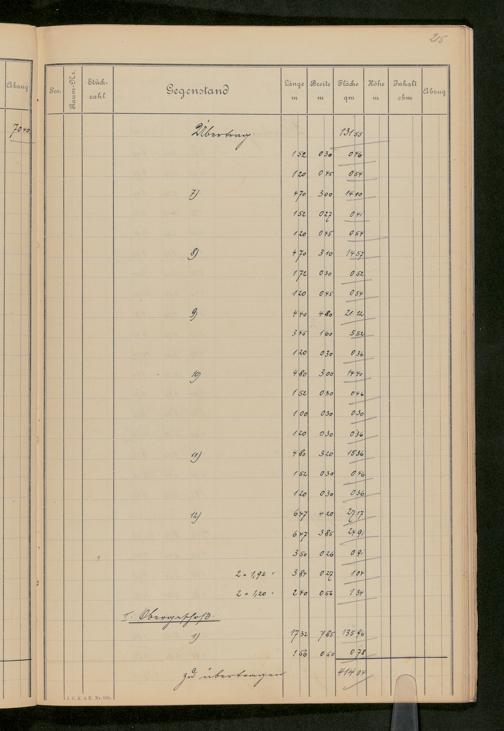 25
Abzug
70 40
Pos.
Raum-Nr.
Stück-
zahl
Gegenstand
Länge
m
Breite
m
Fläche
qm
Höhe
m
Inhalt
cbm
Abzug
Übertrag 131 55
1 52 0 30 0 46
1 20 0 45 0 54
7) 4 70 3 00 14 10
1 52 0 27 0 41
1 20 0 45 0 54
8) 4 70 3 10 14 57
1 72 0 30 0 52
1 20 0 45 0 54
9) 4 40 4 80 21 12
3 45 1 60 5 52
1 20 0 30 0 36
10) 4 80 3 00 14 40
1 52 0 30 0 46
1 00 0 30 0 30
1 20 0 30 0 36
11) 4 80 3 20 15 36
1 52 0 30 0 46
1 20 0 30 0 36
12) 6 47 4 20 27 17
6 47 3 85 24 91
3 50 0 26 0 91
2 × 1,92 = 3 84 0 27 1 04
2 × 1,20 = 2 40 0 56 1 34
1. Obergeschoß.
1) 17 32 7 85 135 96
1 56 0 50 0 78
zu übertragen 414 04